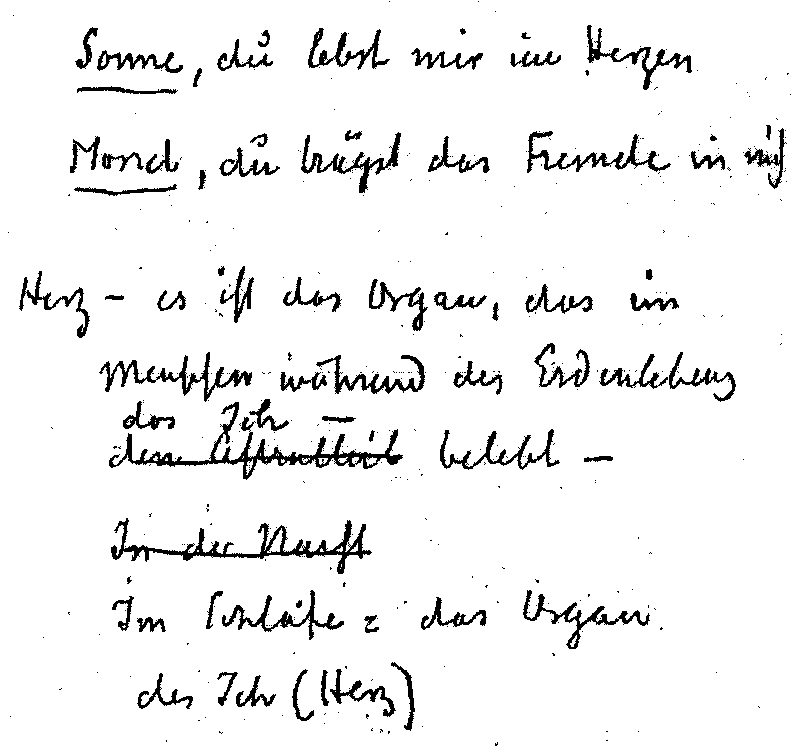 Sonne, du lebst mir im Herzen
Mond, du trägst das Fremde in mich
Herz – es ist das Organ, das im
Menschen während des Erdenlebens
das Ich –
den Astralleib belebt –
In der Nacht
Im Schlafe = das Organ
des Ich (Herz)